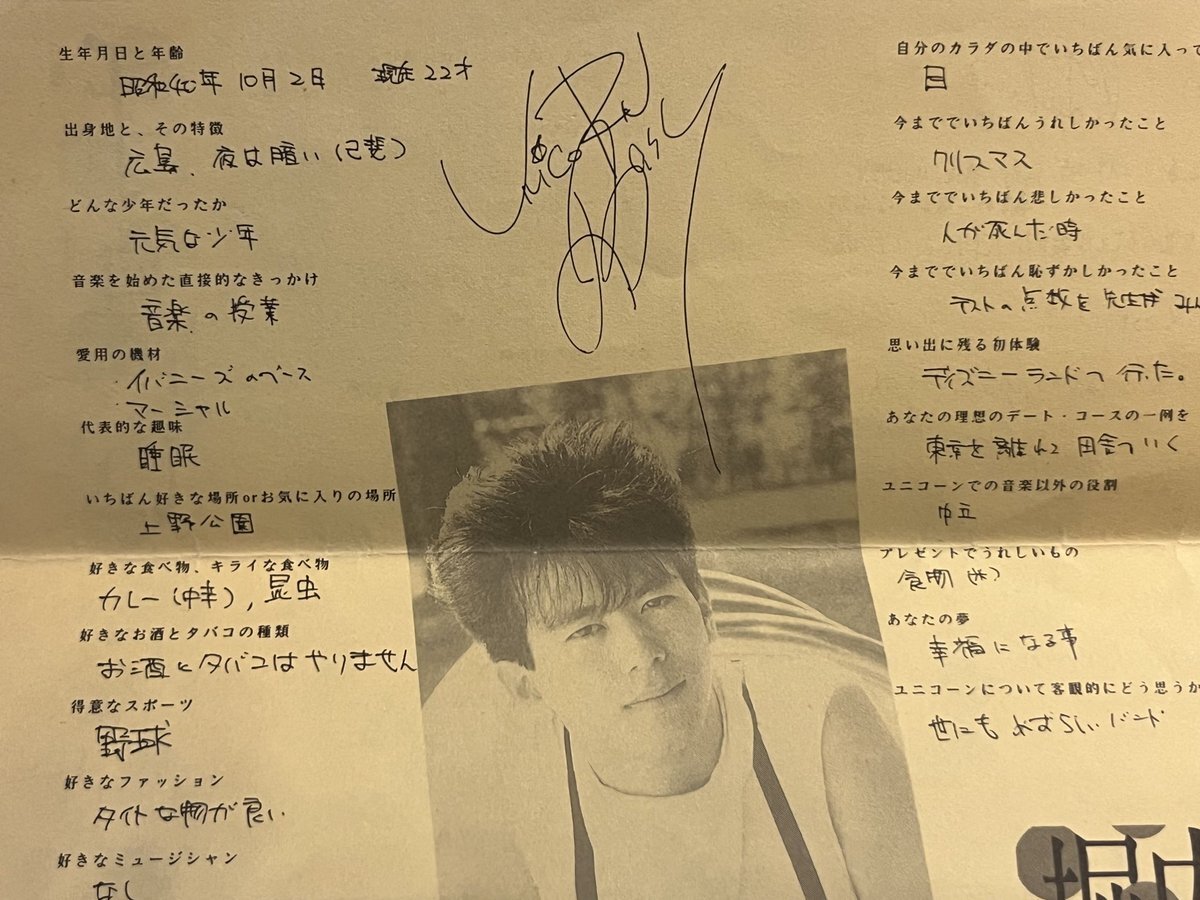 生年月日と年齢
昭和40年 10月2日 現在22才
出身地と、その特徴
広島、夜は暗い(己斐)
どんな少年だったか
元気な少年
音楽を始めた直接的なきっかけ
音楽の授業
愛用の機材
・イバニーズのベース
・マーシャル
代表的な趣味
睡眠
いちばん好きな場所orお気に入りの場所
上野公園
好きな食べ物、キライな食べ物
カレー(中辛), 昆虫
好きなお酒とタバコの種類
お酒とタバコはやりません
得意なスポーツ
野球
好きなファッション
タイトな物が良い
好きなミュージシャン
なし
自分のカラダの中でいちばん気に入って
目
今まででいちばんうれしかったこと
クリスマス
今まででいちばん悲しかったこと
人が死んだ時
今まででいちばん恥ずかしかったこと
テストの点数を先生が
思い出に残る初体験
ディズニーランドへ行った。
あなたの理想のデート・コースの一例を
東京を離れて田舎へいく
ユニコーンでの音楽以外の役割
中立
プレゼントでうれしいもの
食物(米)
あなたの夢
幸福になる事
ユニコーンについて客観的にどう思うか
世にもめずらしいバンド
堀内